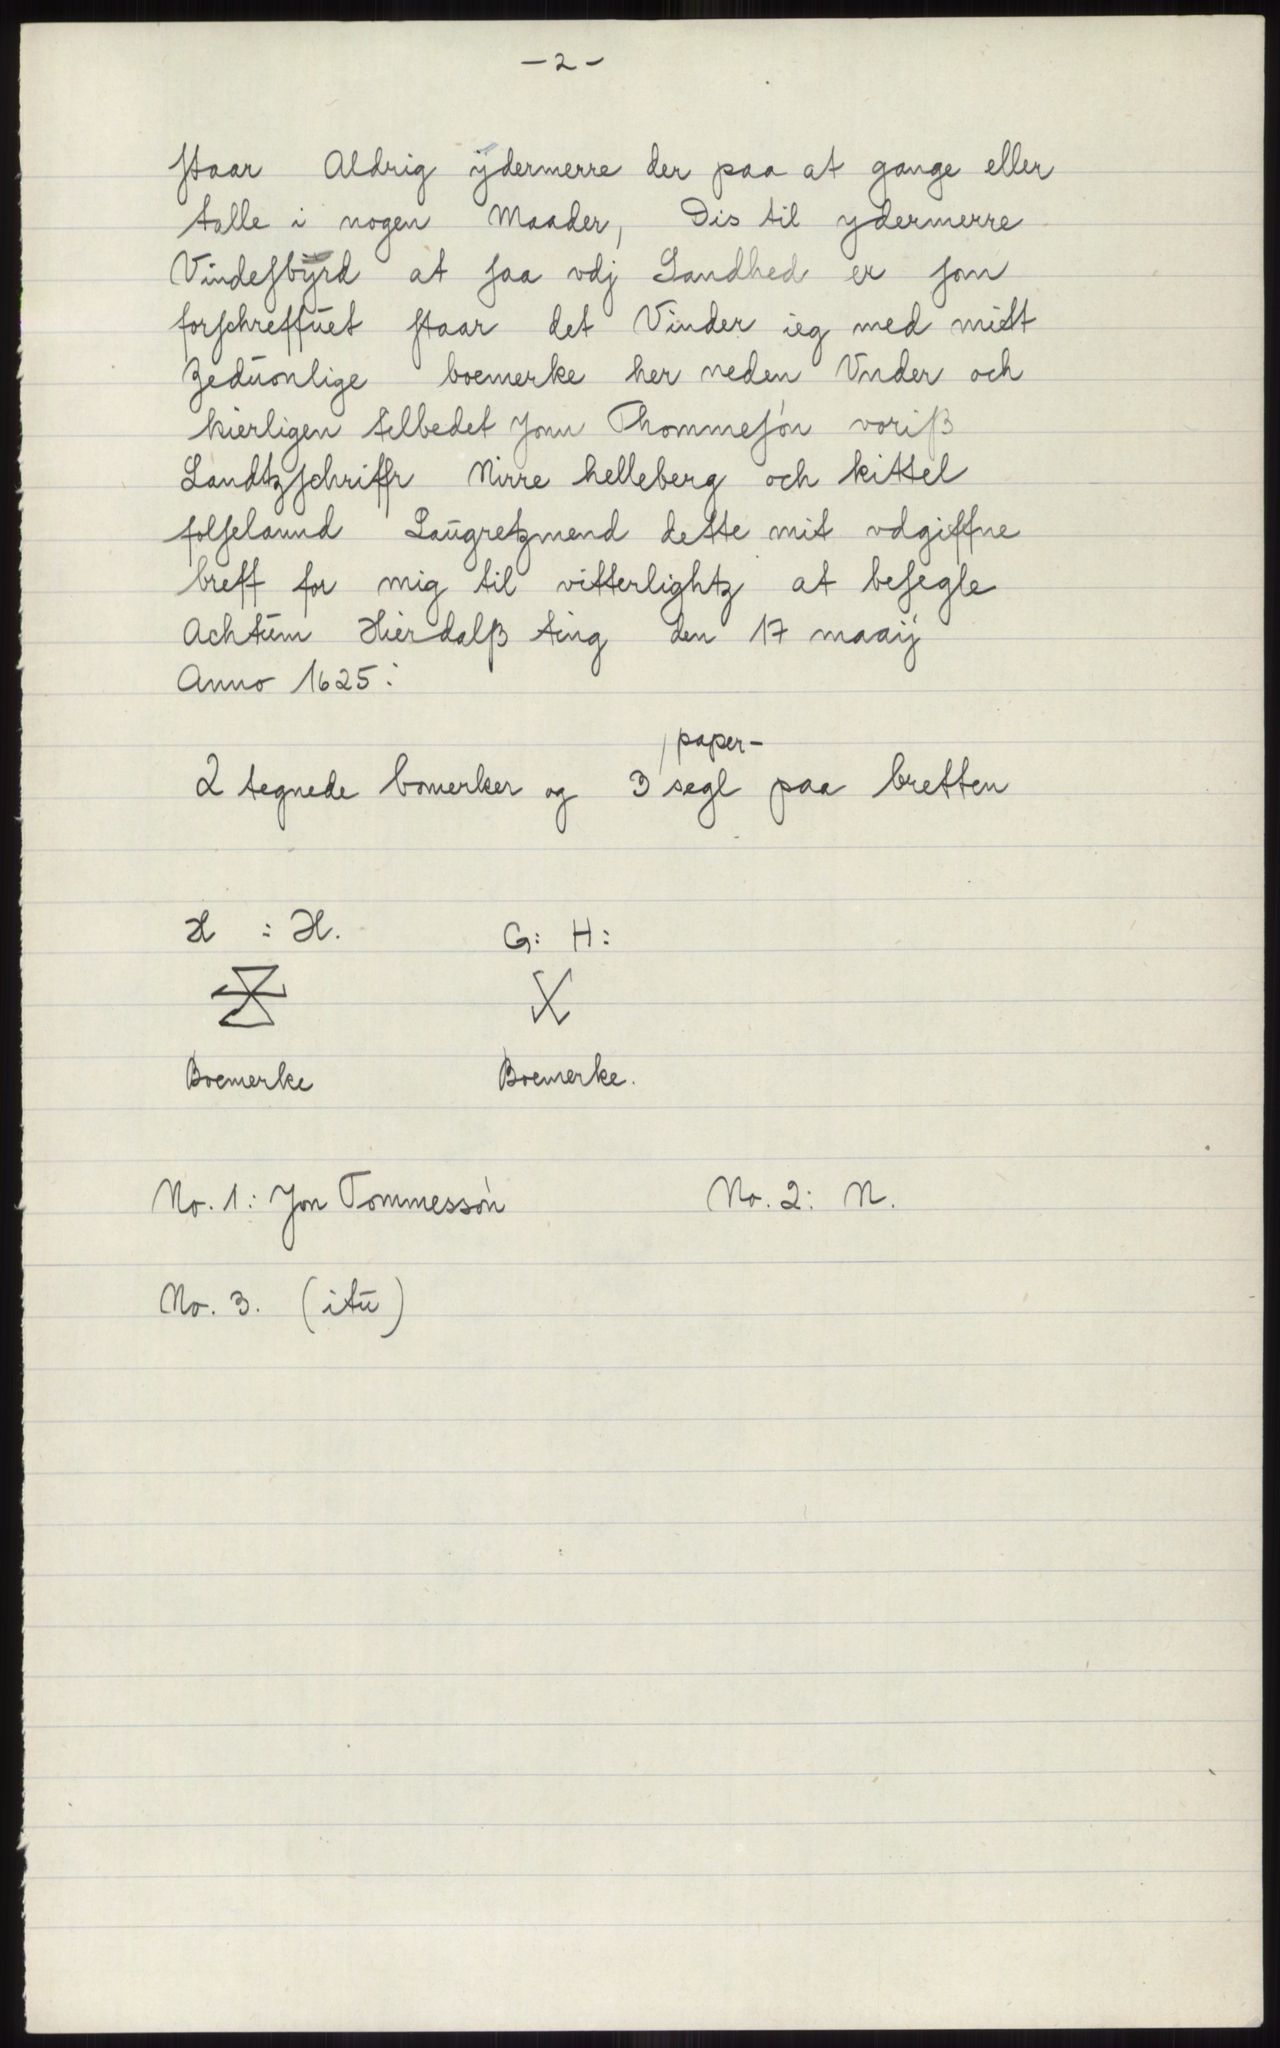 - 2 -
staar Aldrig ÿdermerre der paa at gange eller
talle i nogen Maader, Dis til ydermerre
Vindesbÿrd at saa vdj Sandhed er som
forschreffuet staar det Vinder ieg med mitt
Zedūonlige boemerke her neden Vnder och
kierligen tilbedet Jonn Thommesón voriß
Landtzschriffr Nirre helleberg och kittel
folselannd Laūgretzmend dette mit vdgiffne
breff for mig til vitterlightz at besegle
Achtūm Hierdalß ting den 17 maaÿ
Anno 1625:
2 tegnede bomerker og 3 paper-segl paa bretten
H : H. G: H:
Boemerke Boemerke.
No. 1: Jon Tommessón No. 2: N.
No. 3. (itū)